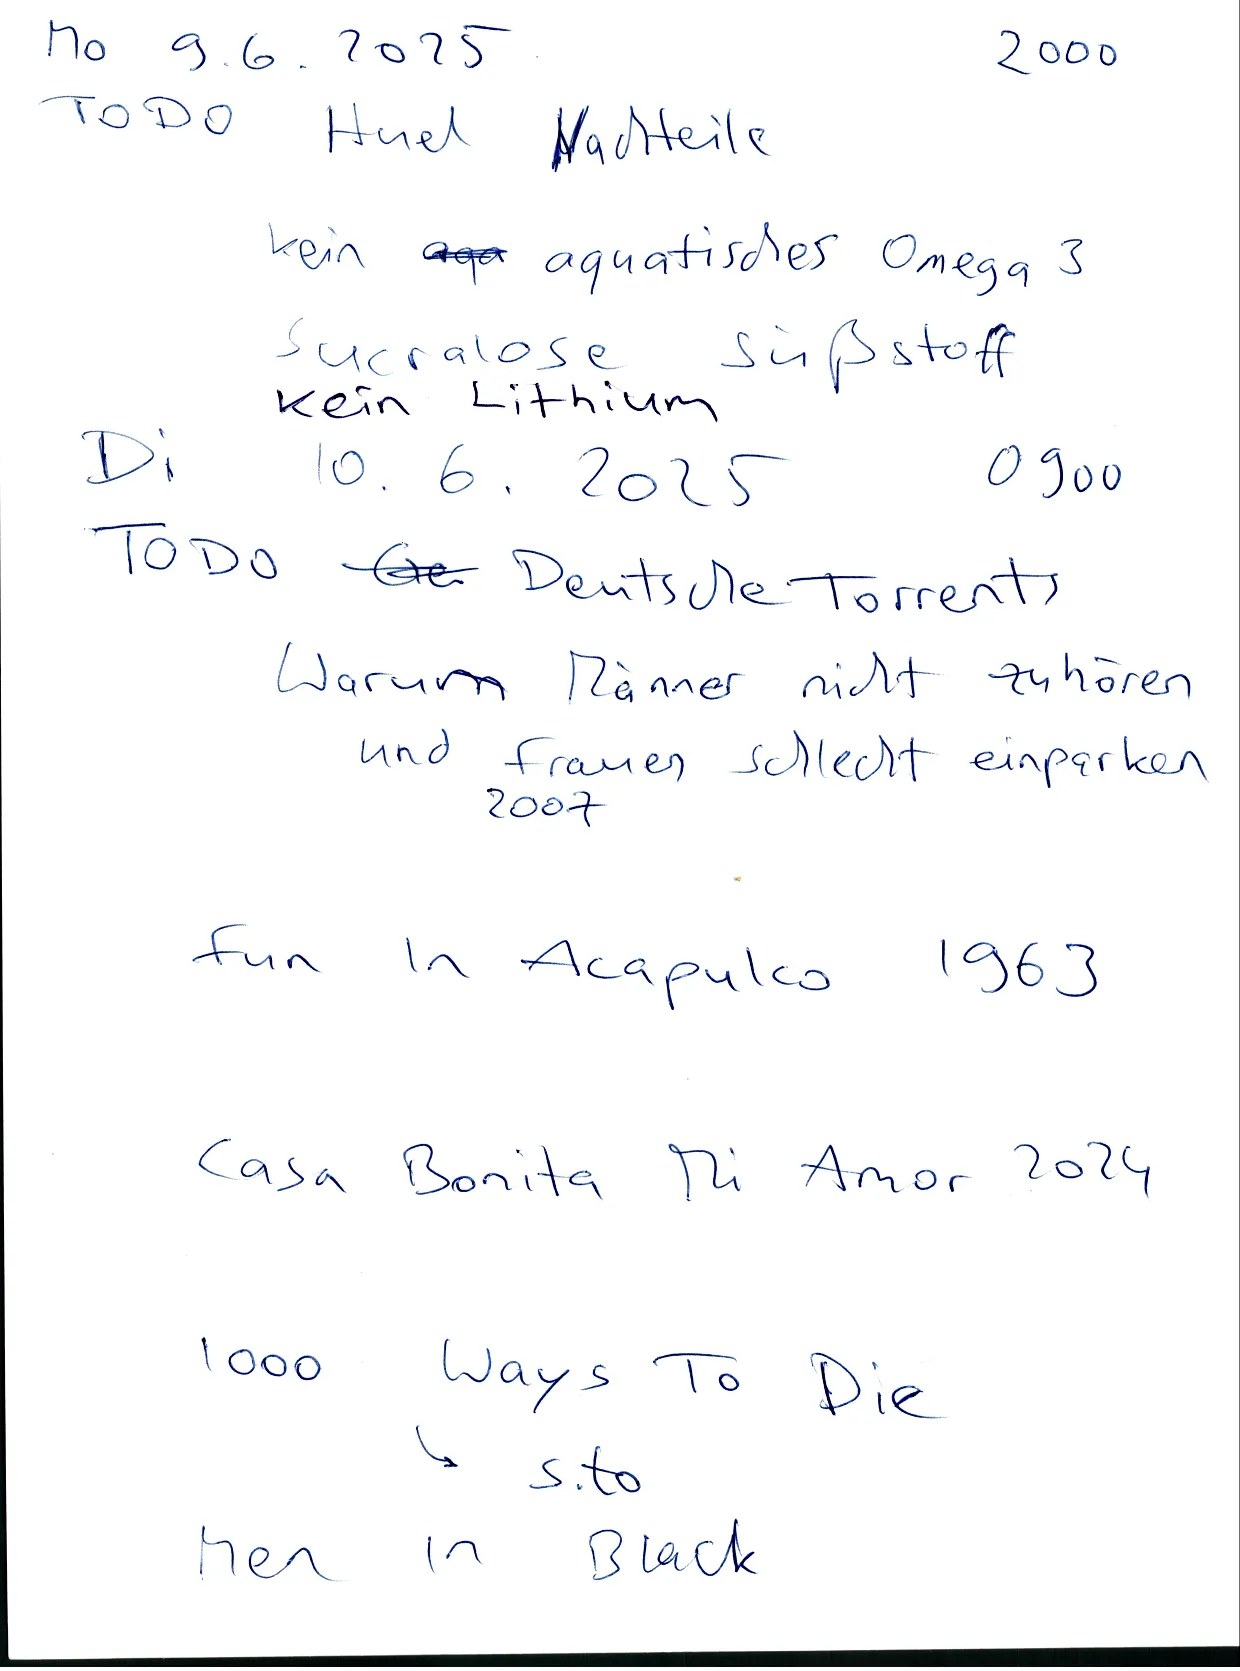 Mo 9.6.2025 2000
TODO Huel Nachteile
kein aqa aquatisches Omega 3
Sucralose süßstoff
kein Lithium
Di 10.6.2025 0900
TODO Ger Deutsche Torrents
Warum Männer nicht zuhören
und Frauen schlecht einparken
2007
Fun In Acapulco 1963
Casa Bonita Mi Amor 2024
1000 Ways To Die
↳ s.to
Men in Black